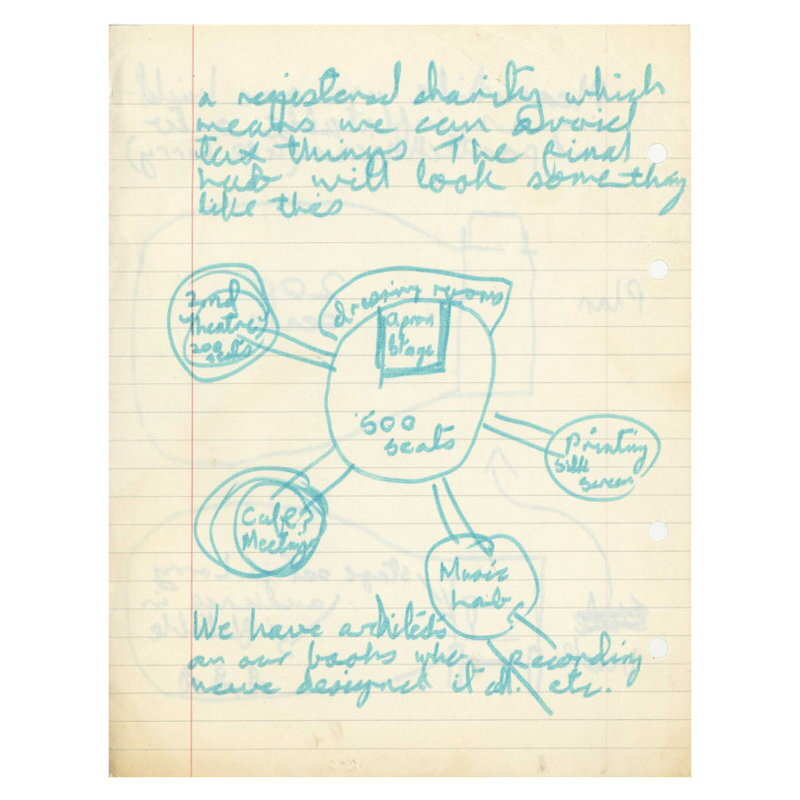 a registered charity which
means we can avoid
tax things The final
hub will look something
like this
2nd
Theatre
200
seats
dressing rooms
apron
stage
500
seats
Printing
Silk
Screen
Cafe?
Meetings
Music
hub
We have architects
on our books who recording
have designed it all. etc.
Plan